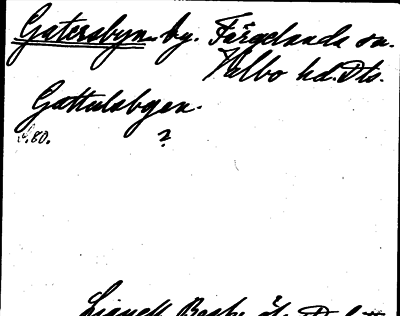 Gatersbyn. by. Färgelanda sn.
Valbo hd. Dls.
Gattulsbyen.
s. 80. ?
Lignell Beskr. öf. Dal